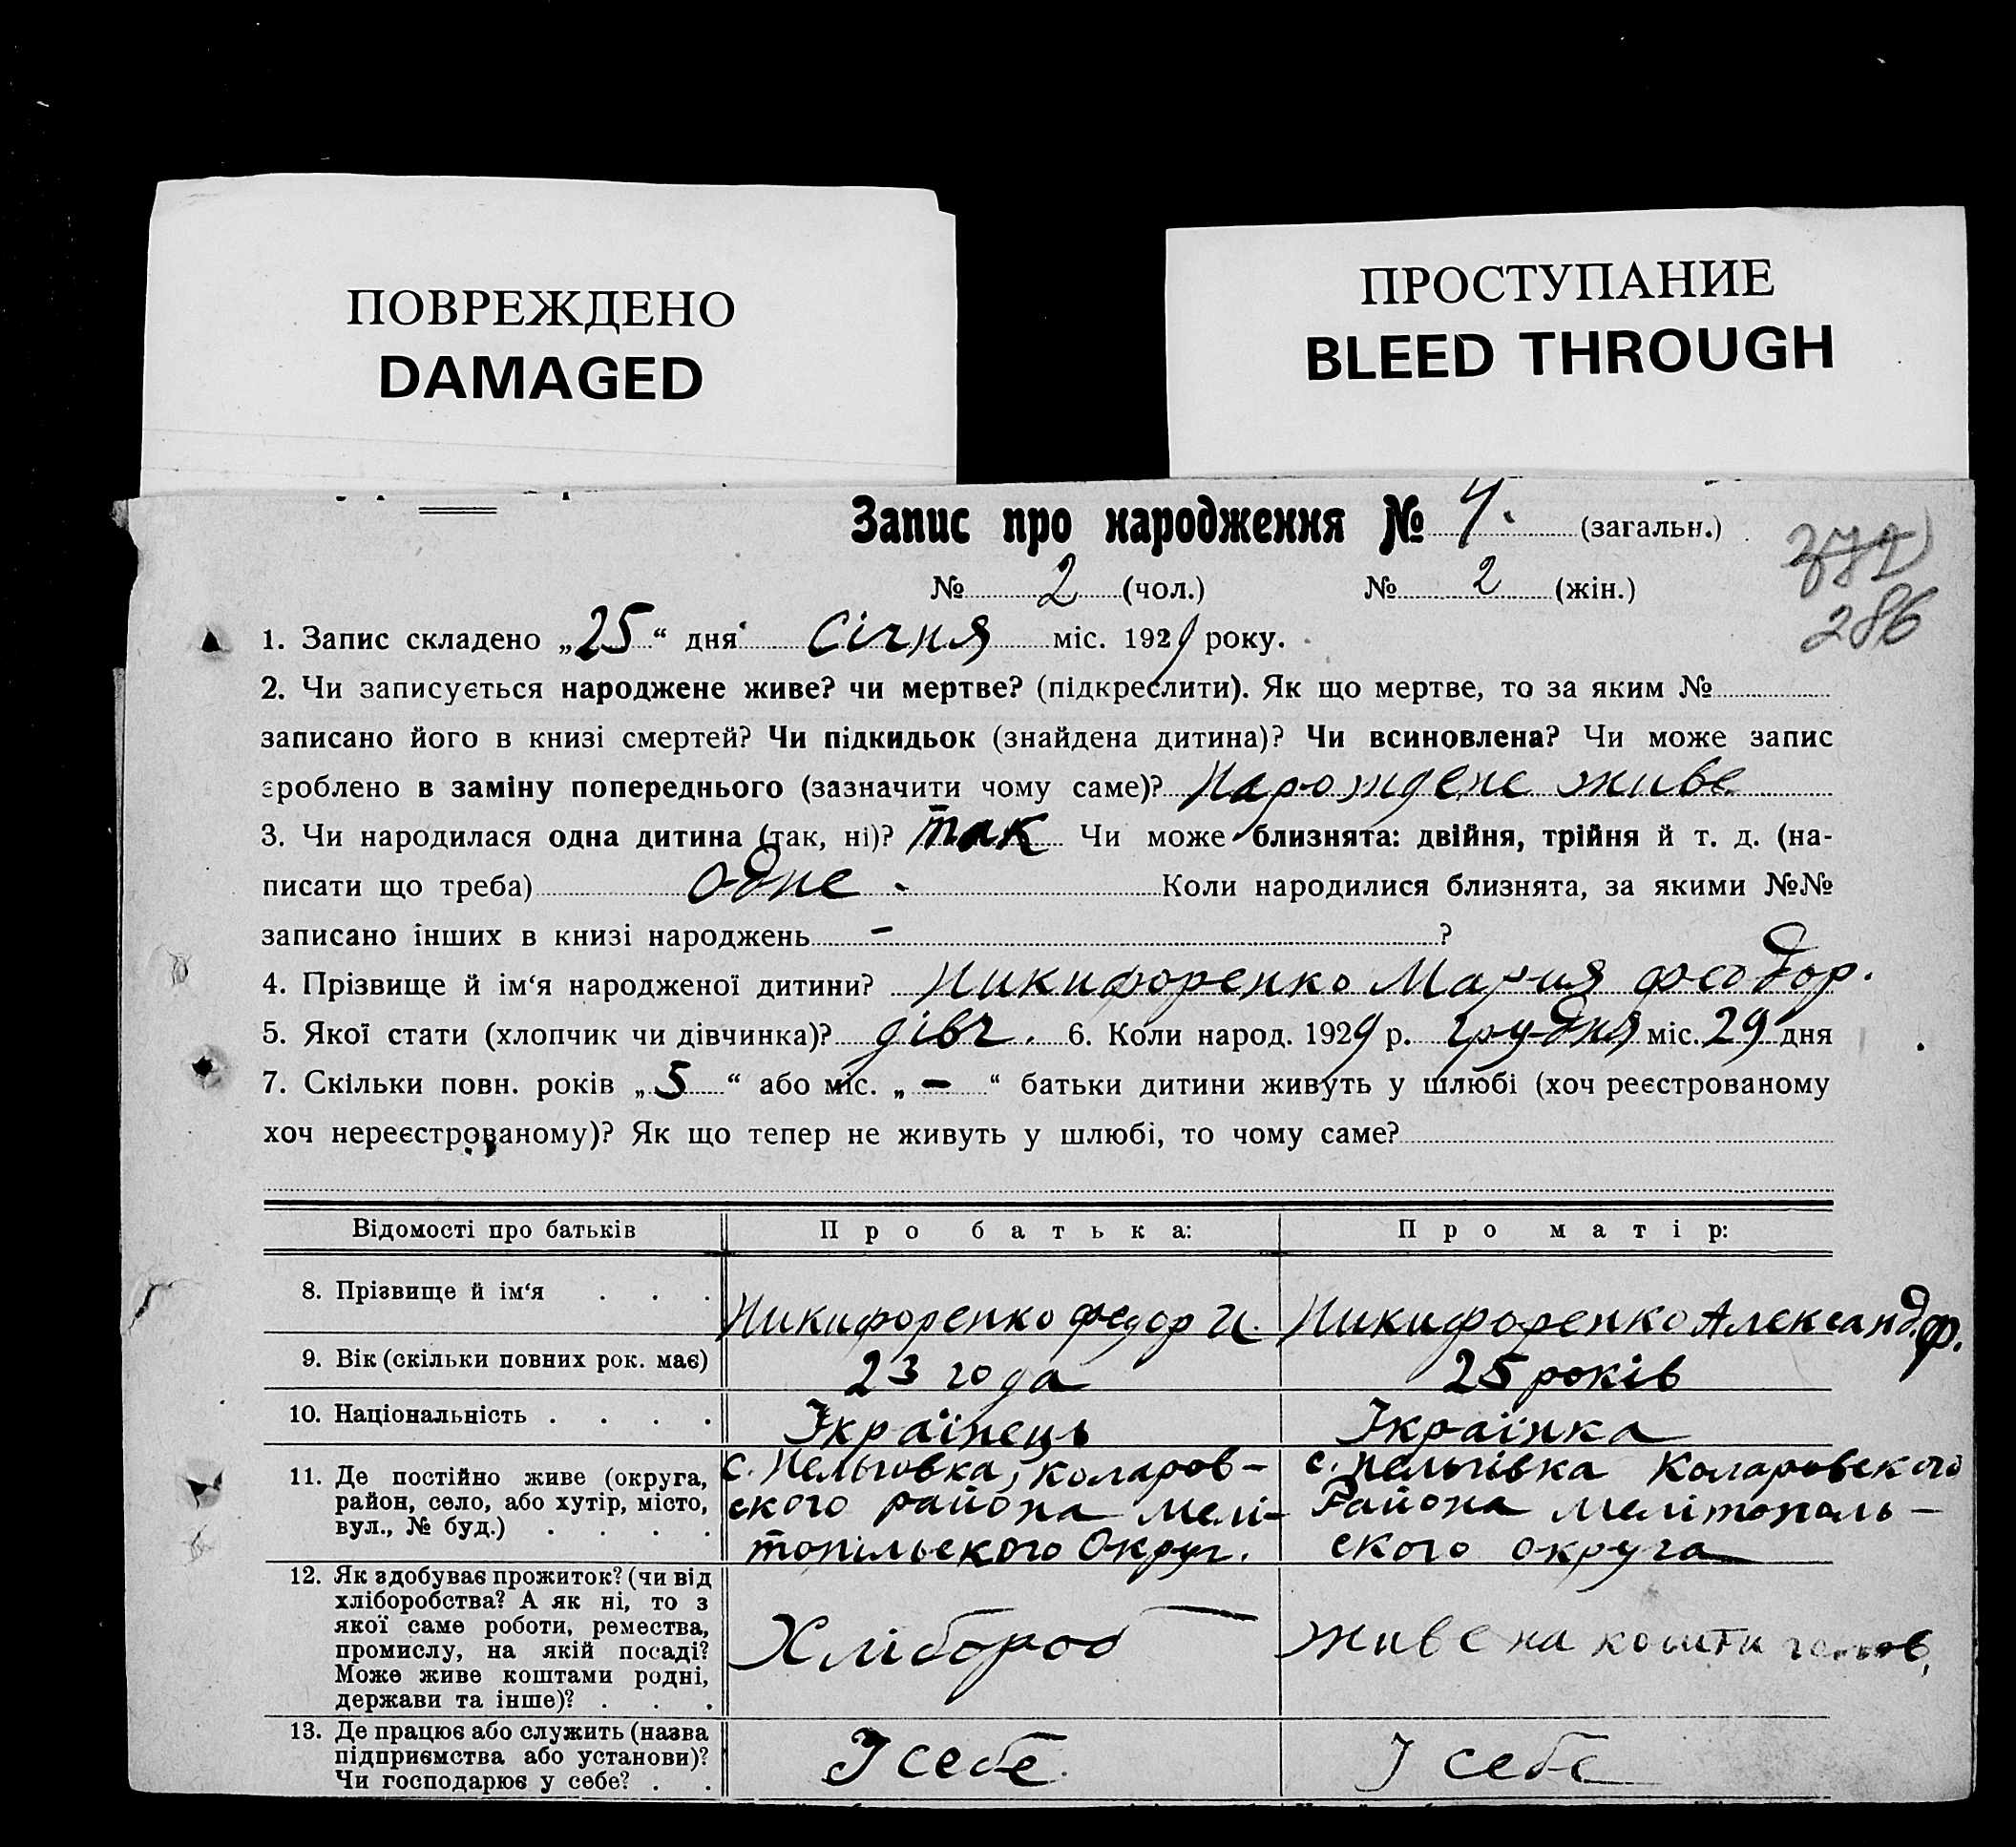 ПОВРЕЖДЕНО
DAMAGED
ПРОСТУПАНИЕ
BLEED THROUGH
Запис про народження № 4. (загальн.)
372
286
№ 2 (чол.) № 2 (жін.)
1. Запис складено „25“ дня Січня міс. 1929 року.
2. Чи записується народжене живе? чи мертве? (підкреслити). Як що мертве, то за яким №
записано його в книзі смертей? Чи підкидьок (знайдена дитина)? Чи всиновлена? Чи може запис
зроблено в заміну попереднього (зазначити чому саме)? Нарождене живе
3. Чи народилася одна дитина (так, ні)? так Чи може близнята: двійня, трійня й т. д. (на-
писати що треба) одне. Коли народилися близнята, за якими №№
записано інших в книзі народжень - ?
4. Прізвище й ім‘я народженої дитини? Никифоренко Мария Феодор.
5. Якої стати (хлопчик чи дівчинка)? дівч. 6. Коли народ. 1929 р. грудня міс. 29 дня
7. Скільки повн. років „5“ або міс. „-“ батьки дитини живуть у шлюбі (хоч реєстрованому
хоч нереєстрованому)? Як що тепер не живуть у шлюбі, то чому саме?
Відомості про батьків Про батька: Про матір:
8. Прізвище й ім‘я . . . Никифоренко Федор И. Никифоренко Александ. Ф.
9. Вік (скільки повних рок. має) 23 года 25 років
10. Національність . . . . Україїнець Українка
11. Де постійно живе (округа, район, село, або хутір, місто, вул., № буд.) . . . .
с. Нельговка, Коларов-
ского района Мелі-
топільского Округ.
с. Нельгівка Коларовского
Района Мелітополь-
ского округа
12. Як здобуває прожиток? (чи від
хліборобства? А як ні, то з
якої саме роботи, ремества,
промислу, на якій посаді?
Може живе коштами родні,
держави та інше)? . . .
Хлібороб
живе на кошти
13. Де працює або служить (назва
підприємства або установи)?
Чи господарює у себе? . .
У себе
У себе